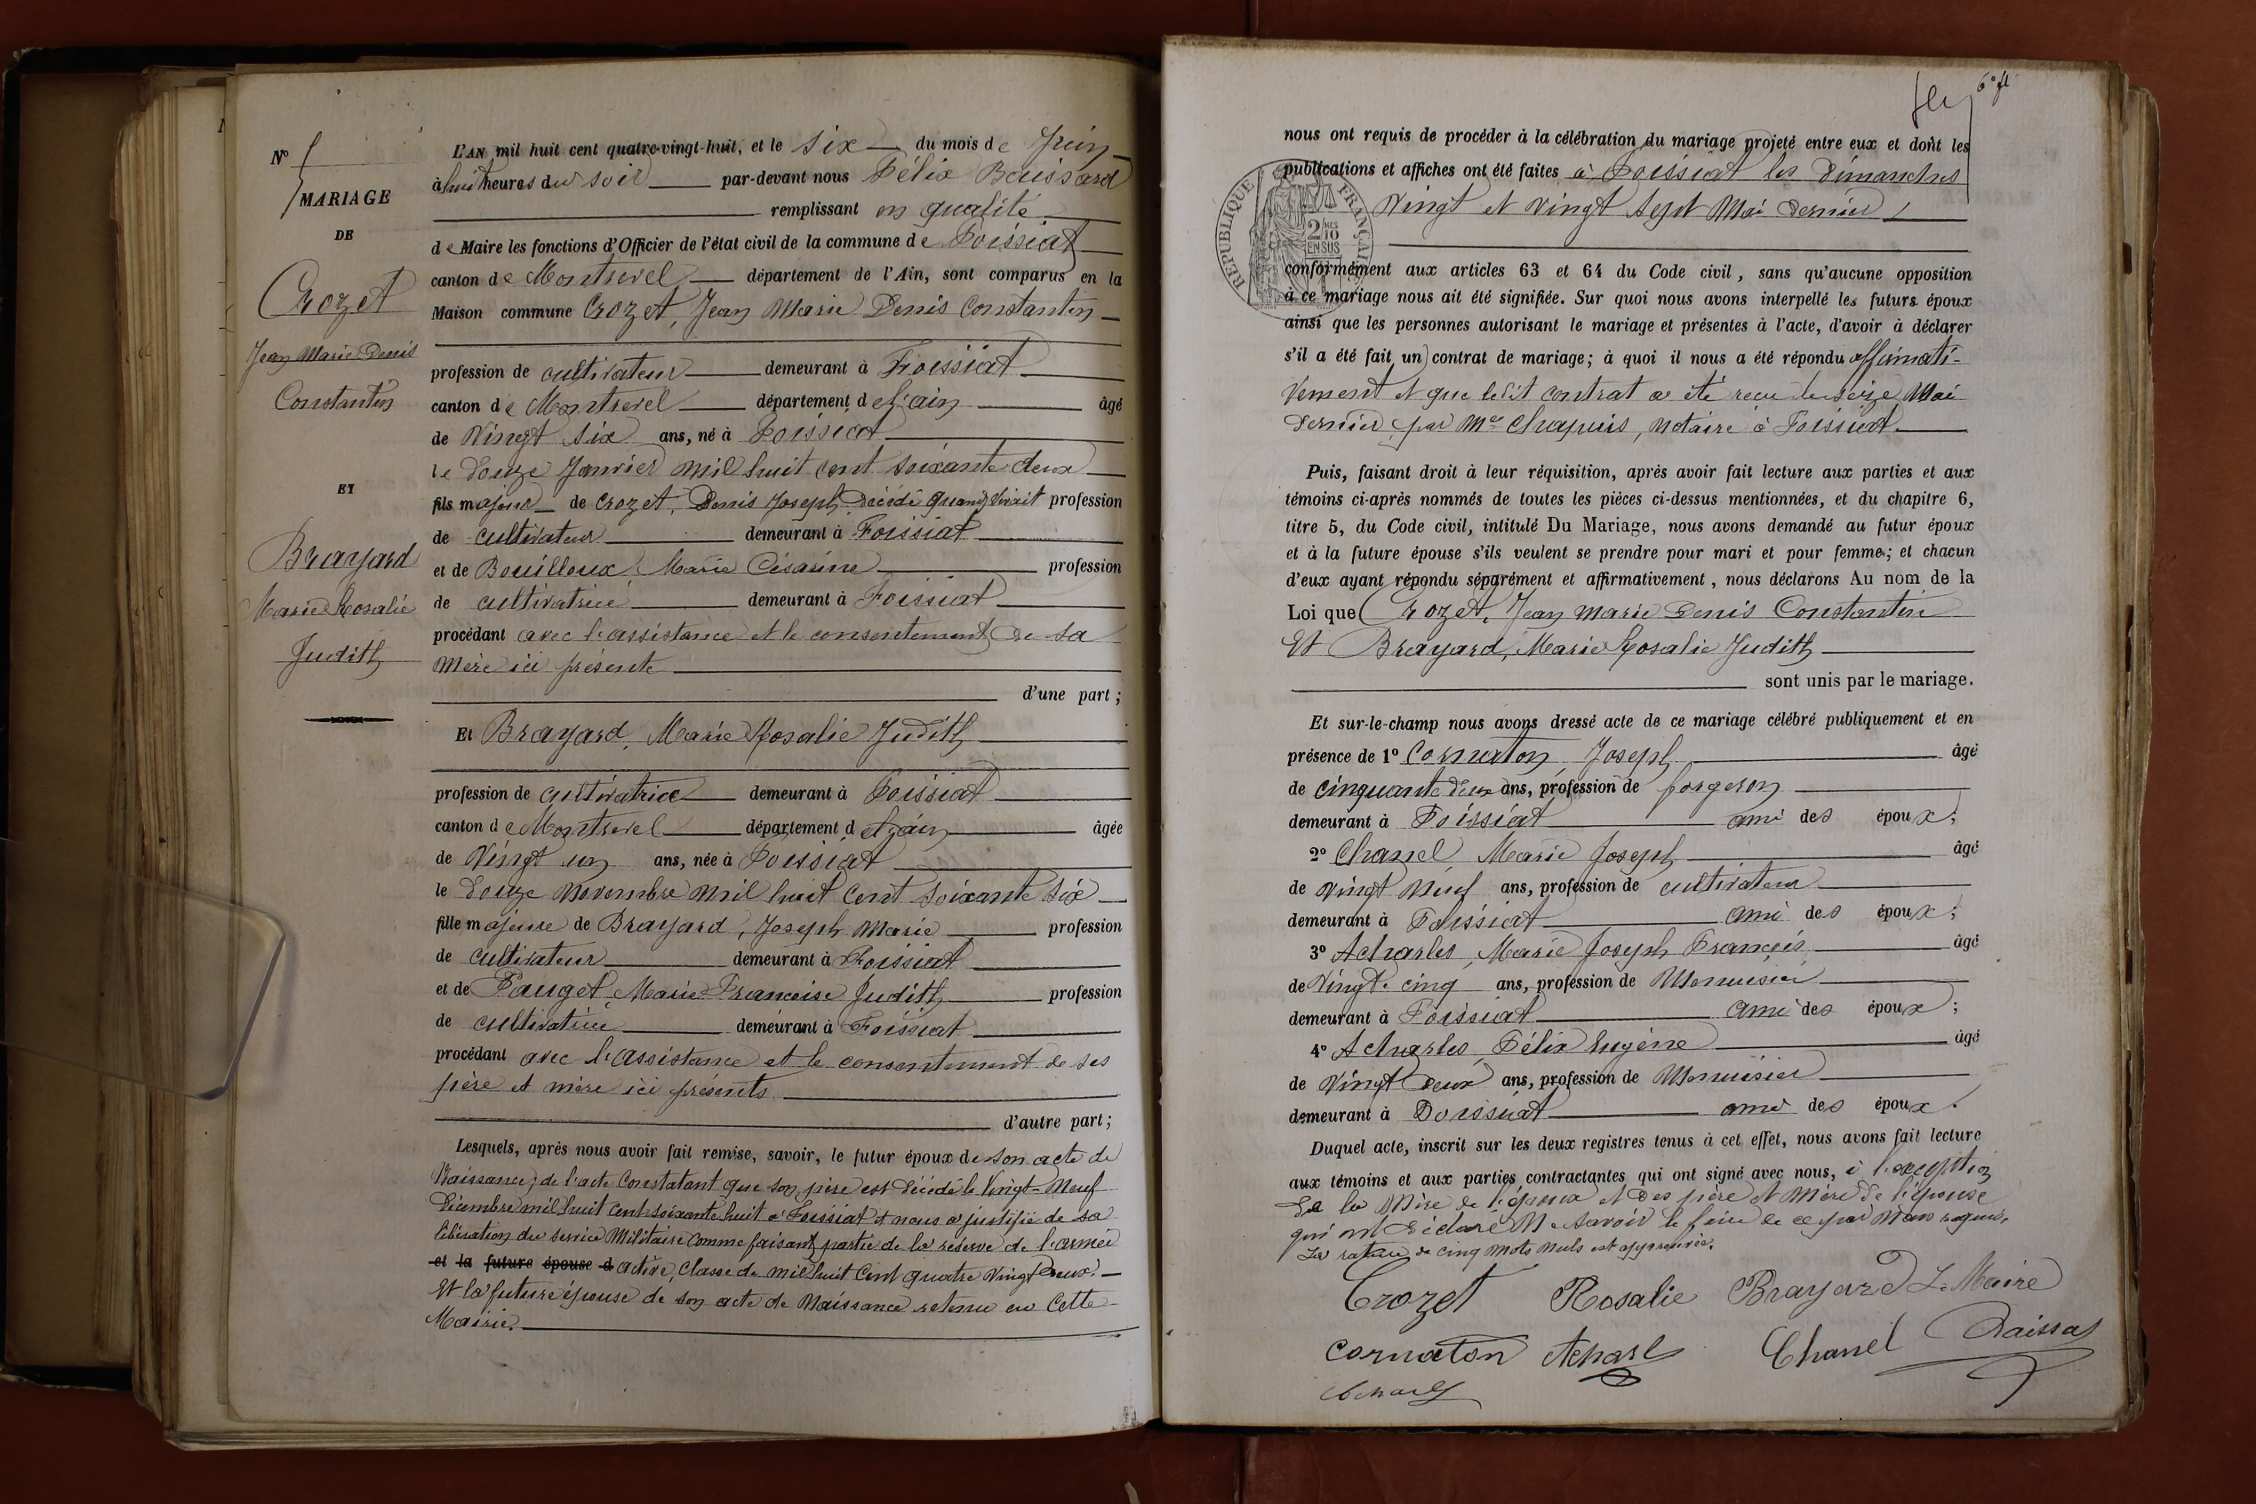 N° 5
MARIAGE
DE
Crozet
Jean Marie Denis
Constantin
ET
Brayard
Marie Rosalie
Judith
L'AN mil huit cent quatre-vingt-huit, et le six du mois de Juin
à huit heures du soir par-devant nous Félix Boissard
remplissant en qualité
de Maire les fonctions d'Officier de l'état civil de la commune de Foissiat
canton de Montrevel département de l'Ain, sont comparus en la
Maison commune Crozet, Jean Marie Denis Constantin
profession de cultivateur demeurant à Foissiat
canton de Montrevel département de l'ain âgé
de Vingt six ans, né à Foissiat
le Douze Janvier mil huit cent soixante deux
fils majeur de Crozet, Denis Joseph, Décédé quand vivait profession
de cultivateur demeurant à Foissiat
et de Bouilloux, Marie Césarine profession
de cultivatrice demeurant à Foissiat
procédant avec l'assistance et le consentement de sa
mère ici présente
d'une part ;
Et Brayard, Marie Rosalie Judith
profession de cultivatrice demeurant à Foissiat
canton de Montrevel département de l'ain âgée
de Vingt un ans, née à Foissiat
le Douze Novembre mil huit cent soixante six
fille majeure de Brayard, Joseph Marie profession
de cultivateur demeurant à Foissiat
et de Pauget, Marie Françoise Judith profession
de cultivatrice demeurant à Foissiat
procédant avec l'assistance et le consentement de ses
père et mère ici présents
d'autre part ;
Lesquels, après nous avoir fait remise, savoir, le futur époux de son acte de
Naissance, de l'acte Constatant que son père est Décédé le Vingt-Neuf
Décembre mil huit cent soixante huit à Foissiat & nous a justifié de sa
libération du service Militaire comme faisant partie de la réserve de l'armée
et la future épouse d active, classe de mil huit Cent quatre Vingt Deux.
Et la future épouse de son acte de Naissance retenu en Cette
Mairie.
6e ft
nous ont requis de procéder à la célébration du mariage projeté entre eux et dont les
publications et affiches ont été faites à Foissiat les Dimanches
Vingt et Vingt Sept Mai Dernier
RÉPUBLIQUE FRANÇAISE
2/10 EN SUS
conformément aux articles 63 et 64 du Code civil, sans qu'aucune opposition
à ce mariage nous ait été signifiée. Sur quoi nous avons interpellé les futurs époux
ainsi que les personnes autorisant le mariage et présentes à l'acte, d'avoir à déclarer
s'il a été fait un contrat de mariage ; à quoi il nous a été répondu affirmati-
vement et que ledit contrat a été reçu le seize Mai
Dernier, par Me Chapuis, Notaire à Foissiat
Puis, faisant droit à leur réquisition, après avoir fait lecture aux parties et aux
témoins ci-après nommés de toutes les pièces ci-dessus mentionnées, et du chapitre 6,
titre 5, du Code civil, intitulé Du Mariage, nous avons demandé au futur époux
et à la future épouse s'ils veulent se prendre pour mari et pour femme ; et chacun
d'eux ayant répondu séparément et affirmativement, nous déclarons Au nom de la
Loi que Crozet, Jean Marie Denis Constantin
Et Brayard, Marie Rosalie Judith
sont unis par le mariage.
Et sur-le-champ nous avons dressé acte de ce mariage célébré publiquement et en
présence de 1° Cornaton, Joseph âgé
de Cinquante Deux ans, profession de forgeron
demeurant à Foissiat ami des époux ;
2° Chanel Marie Joseph âgé
de Vingt Neuf ans, profession de cultivateur
demeurant à Foissiat ami des époux ;
3° Acharles, Marie Joseph François âgé
de Vingt cinq ans, profession de Menuisier
demeurant à Foissiat ami des époux ;
4° Acharles, Félix Eugène âgé
de Vingt Deux ans, profession de Menuisier
demeurant à Foissiat ami des époux.
Duquel acte, inscrit sur les deux registres tenus à cet effet, nous avons fait lecture
aux témoins et aux parties contractantes qui ont signé avec nous, à l'exception
De la Mère de l'époux et Des père et Mère De l'épouse
qui ont Déclaré Ne Savoir le faire de ce par Nous requis,
La rature de cinq mots nuls est approuvée.
Crozet Rosalie Brayard Le Maire
Cornaton Acharl Chanel